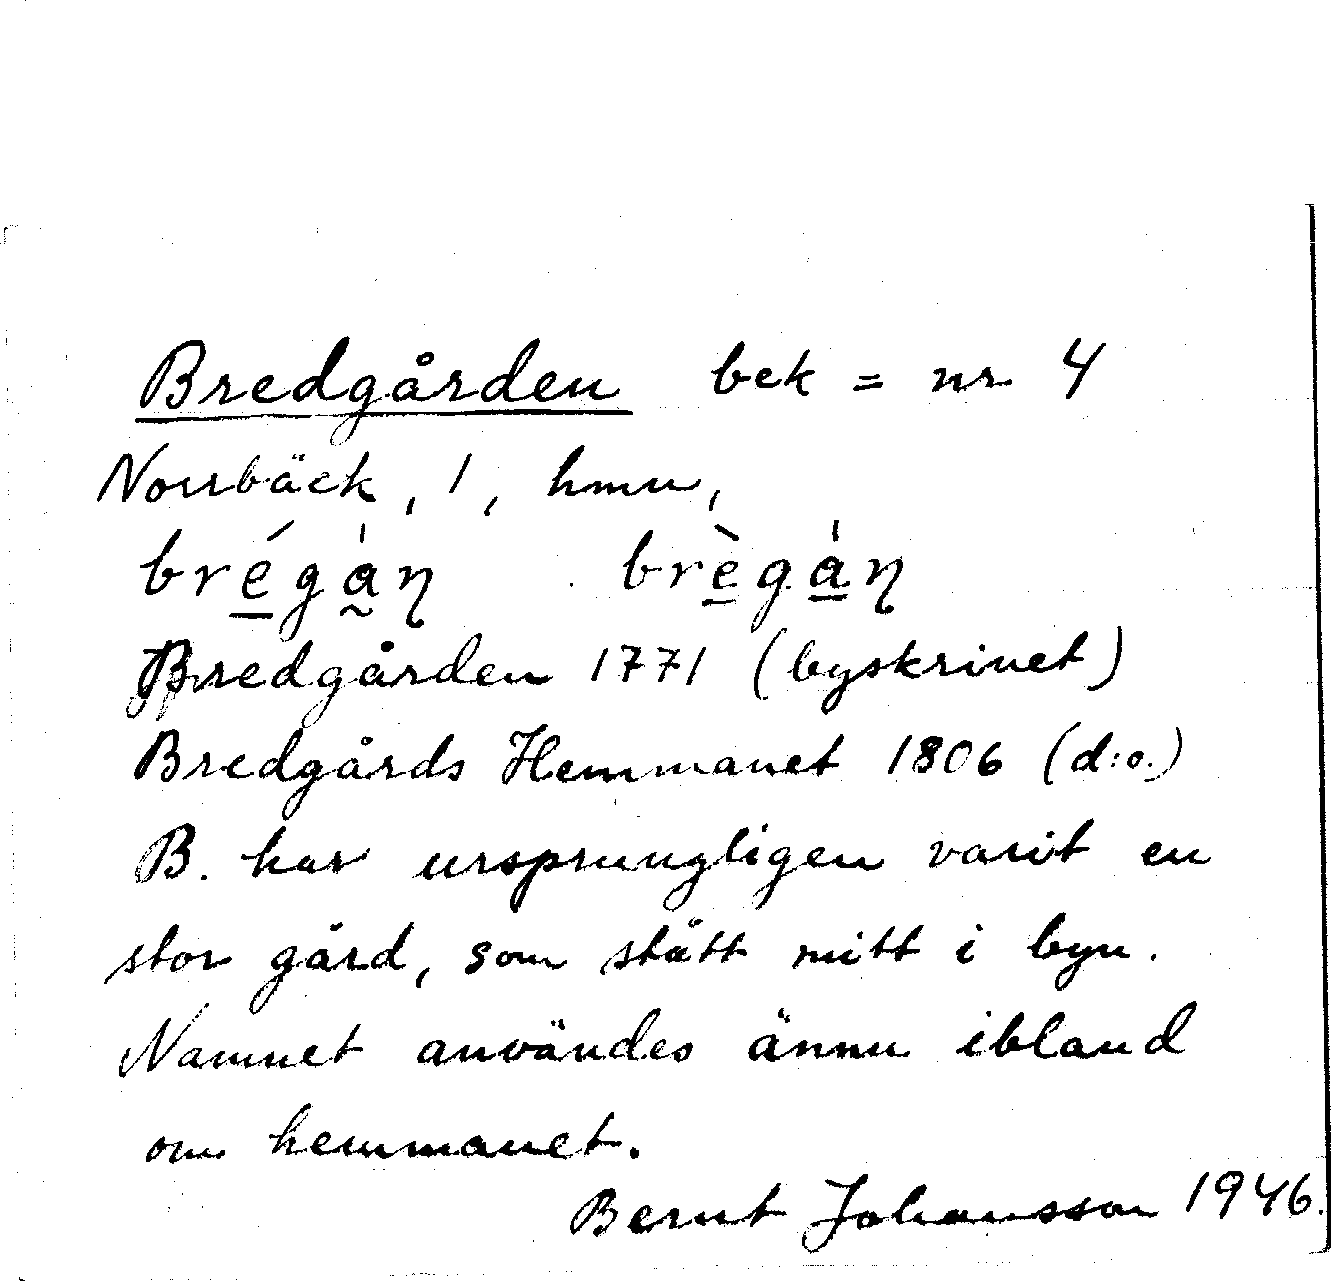 Bredgården bek = nr 4
Norrbäck, 1, hmn,
brégáη brègáη
Bredgården 1771 (byskrivet)
Bredgårds Hemmanet 1806 (d:o.)
B. har ursprungligen varit en
stor gård, som stått mitt i byn.
Namnet användes ännu ibland
om hemmanet.
Bernt Johansson 1946.